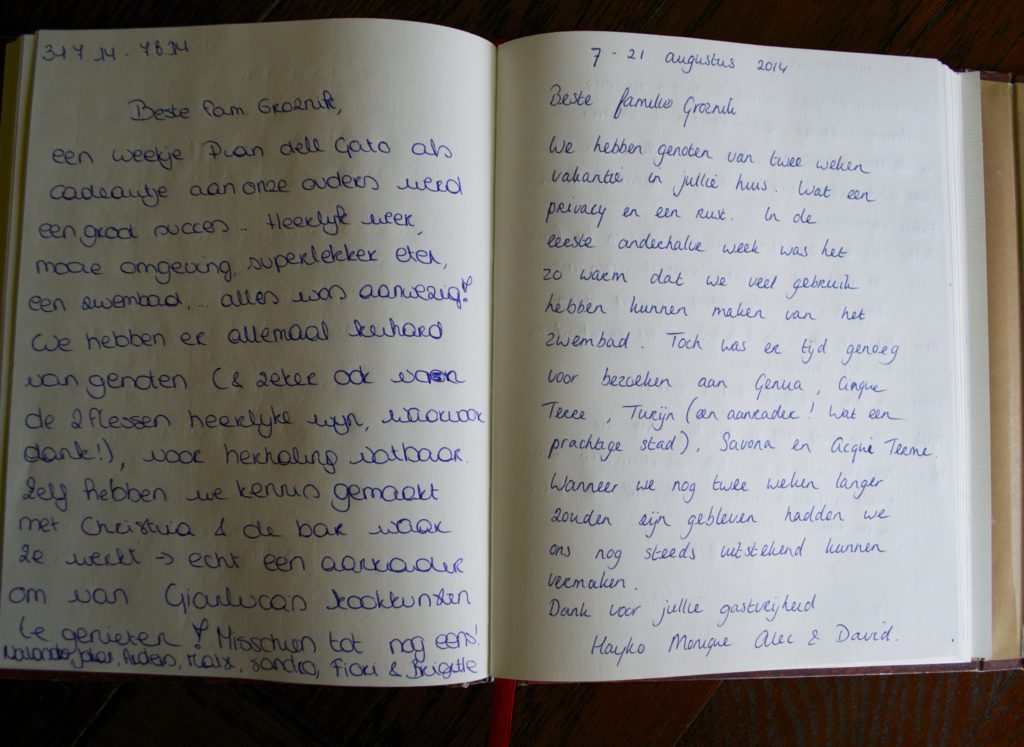 31 7.14 - 7.8.14
Beste fam. Groznik,
een weekje Pian dell Gato als
cadeautje aan onze ouders werd
een groot succes... Heerlijk weer,
mooie omgeving, superlekker eten,
een zwembad,... alles was aanwezig!
We hebben er allemaal keihard
van genoten (& zeker ook van
de 2 flessen heerlijke wijn, waarvoor
dank!), voor herhaling vatbaar.
Zelf hebben we kennis gemaakt
met Christina & de bar waar
ze werkt → echt een aanrader
om van Gianlucas kookkunsten
te genieten! Misschien tot nog eens!
Anders, Sandra, & Brigitte
7 - 21 augustus 2014
Beste familie Groznik
We hebben genoten van twee weken
vakantie in jullie huis. Wat een
privacy en een rust. In de
eerste anderhalve week was het
zo warm dat we veel gebruik
hebben kunnen maken van het
zwembad. Toch was er tijd genoeg
voor bezoeken aan Genua, Cinque
Terre, Turijn (een aanrader! Wat een
prachtige stad), Savona en Acqui Terme.
Wanneer we nog twee weken langer
zouden zijn gebleven hadden we
ons nog steeds uitstekend kunnen
vermaken.
Dank voor jullie gastvrijheid
Hayko Monique Alec & David.